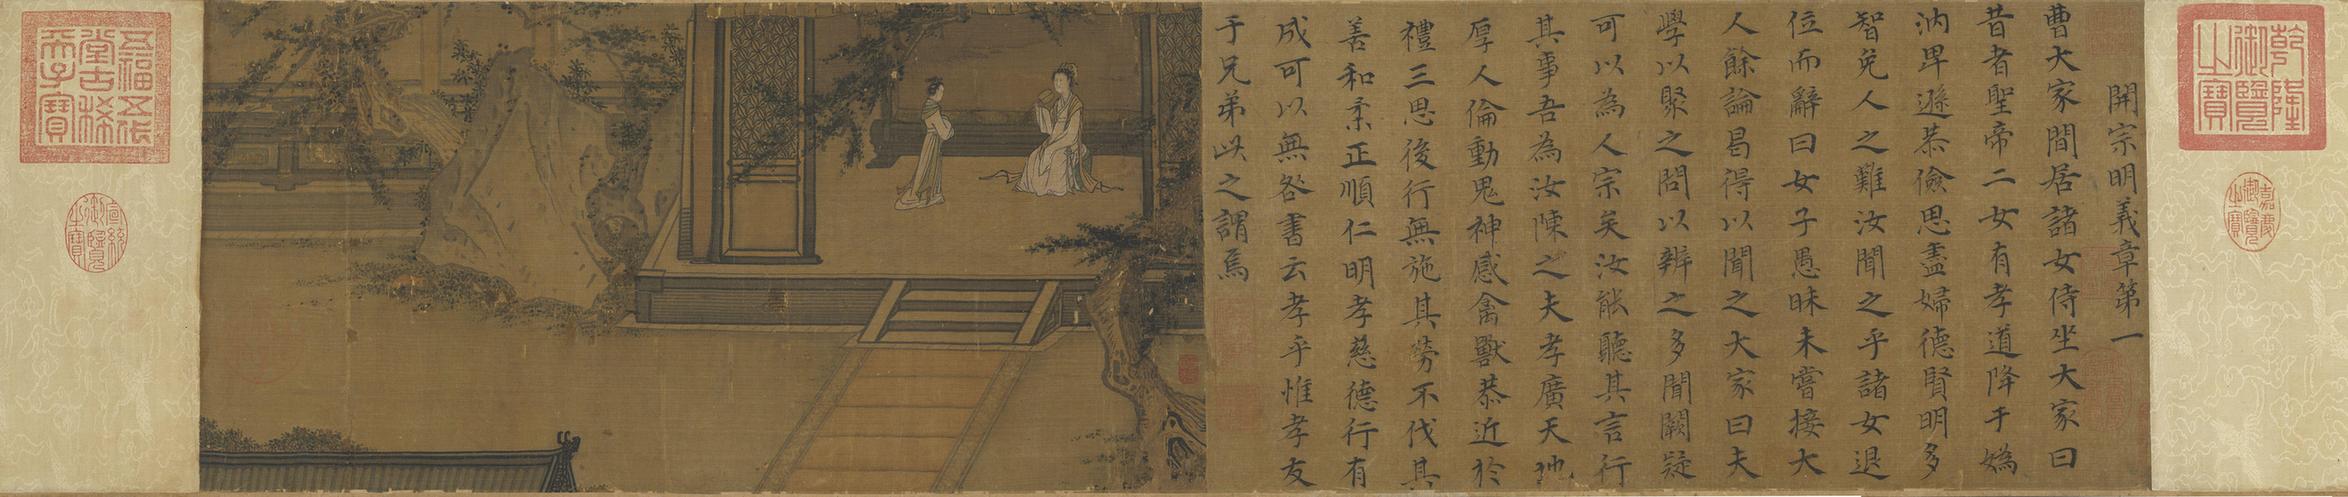 乾隆御覽之寶
嘉慶御覽之寶
開宗明義章第一
曹大家間居諸女侍坐大家曰
昔者聖帝二女有孝道降于媯
汭卑遜恭儉思盡婦德賢明多
智免人之難汝聞之乎諸女退
位而辭曰女子愚昧未嘗接大
人餘論曷得以聞之大家曰夫
學以聚之問以辨之多聞闕疑
可以為人宗矣汝能聽其言行
其事吾為汝陳之夫孝廣天地
厚人倫動鬼神感禽獸恭近於
禮三思後行無施其勞不伐其
善和柔正順仁明孝慈德行有
成可以無咎書云孝乎惟孝友
于兄弟此之謂焉
五福五代堂古稀天子寶
宣統御覽之寶